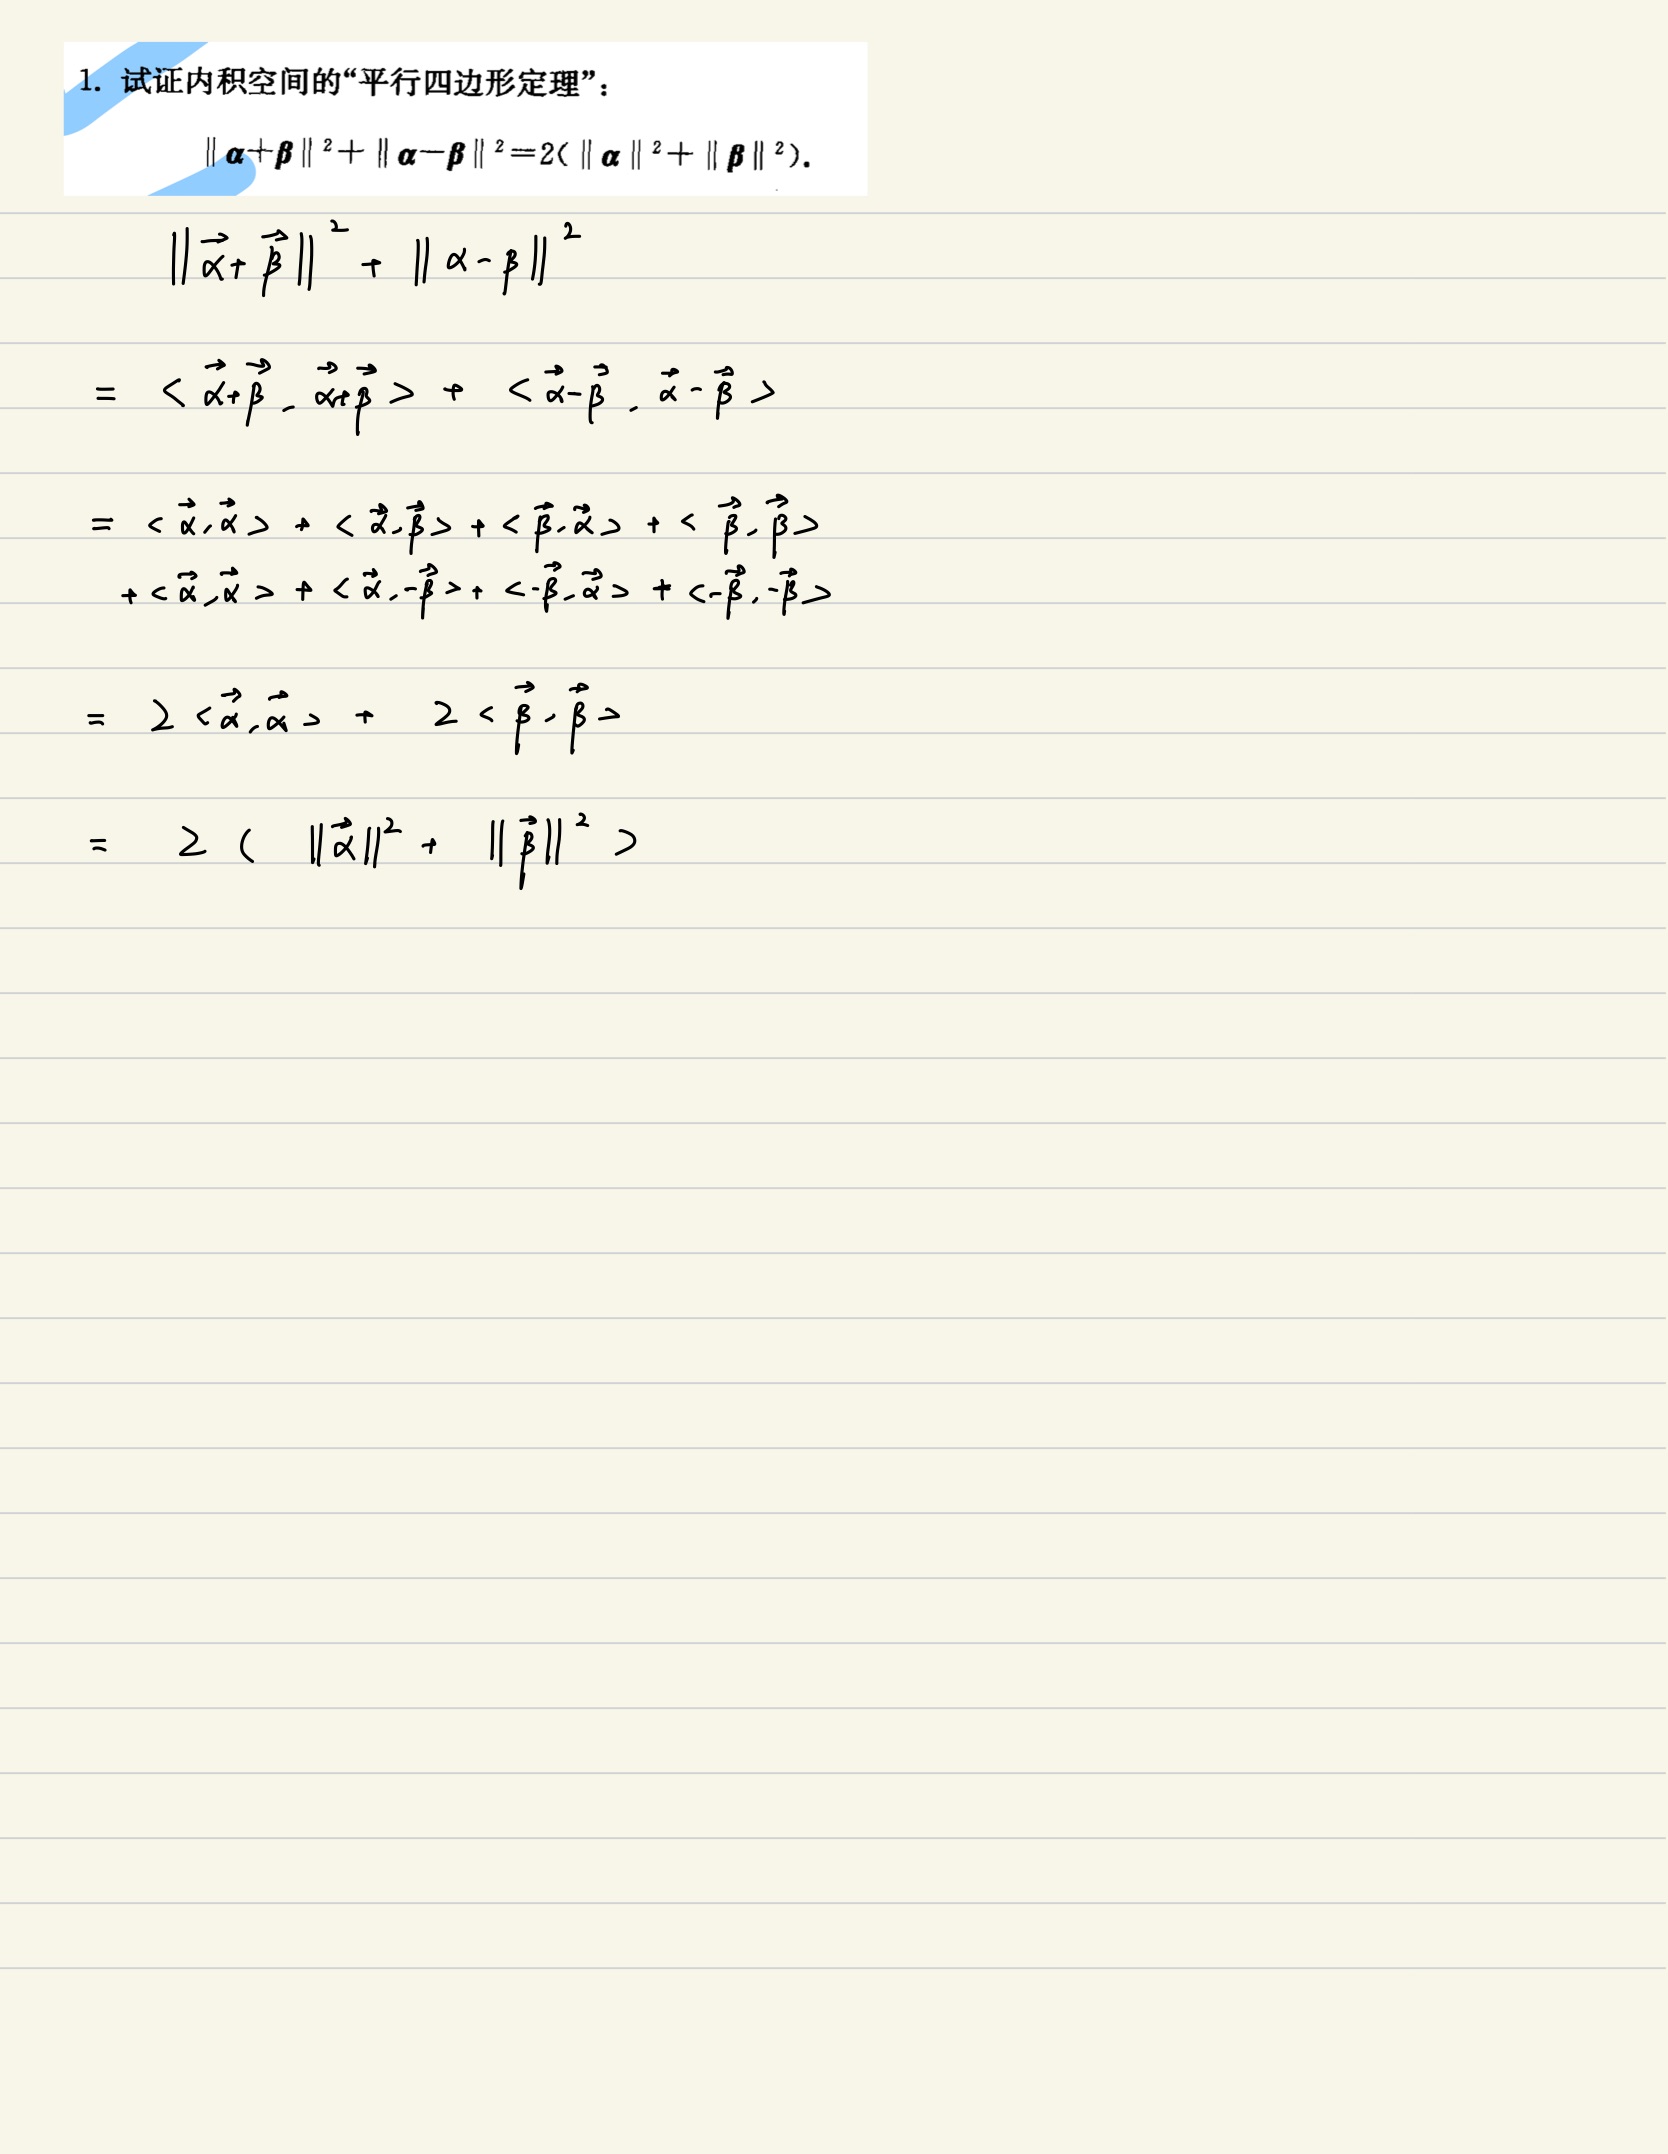 1. 试证内积空间的“平行四边形定理”：
‖α+β‖²+‖α−β‖²=2(‖α‖²+‖β‖²).
‖α⃗+β⃗‖² + ‖α-β‖²
= <α⃗+β⃗, α⃗+β⃗> + <α⃗-β⃗, α⃗-β⃗>
= <α⃗,α⃗> + <α⃗,β⃗> + <β⃗,α⃗> + <β⃗,β⃗>
+ <α⃗,α⃗> + <α⃗,-β⃗> + <-β⃗,α⃗> + <-β⃗,-β⃗>
= 2<α⃗,α⃗> + 2<β⃗,β⃗>
= 2(‖α⃗‖² + ‖β⃗‖²)